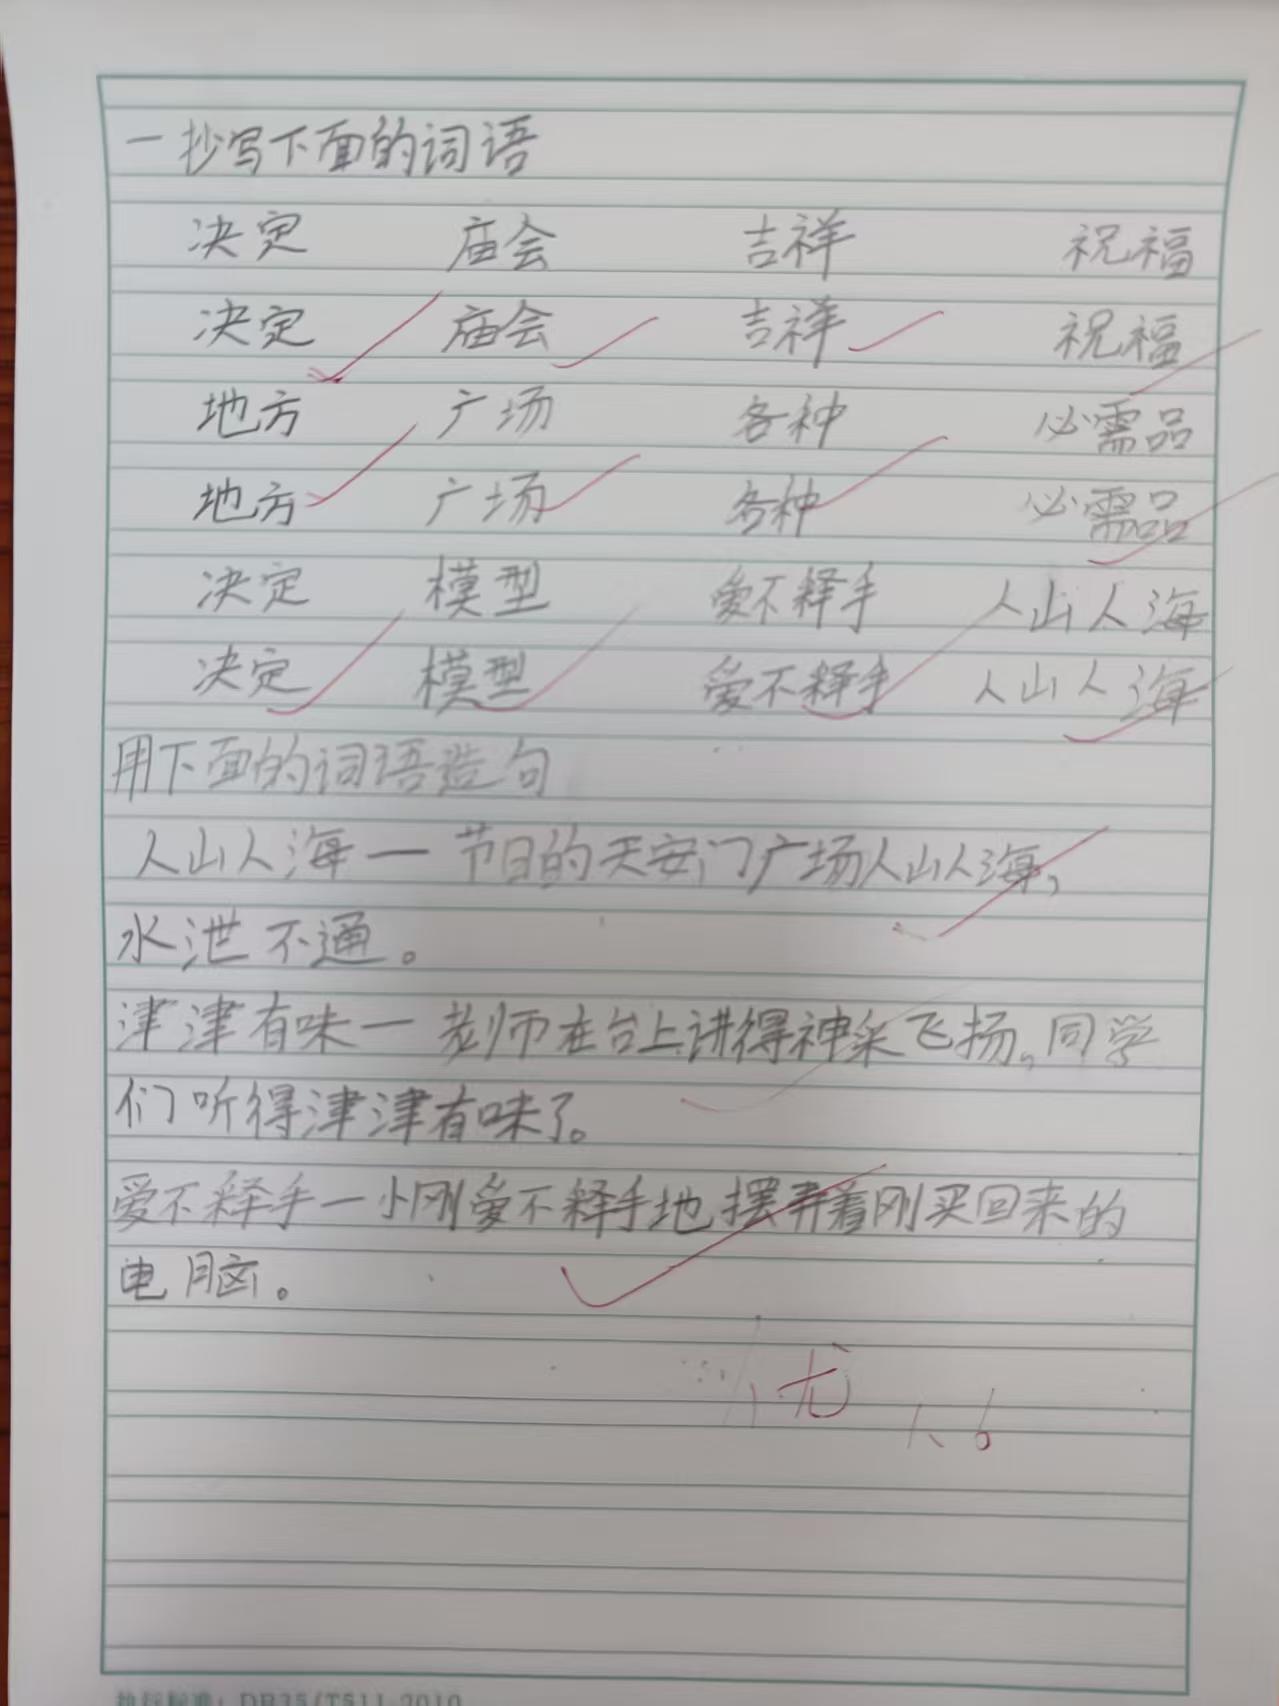 一抄写下面的词语
决定 庙会 吉祥 祝福
决定 庙会 吉祥 祝福
地方 广场 各种 必需品
地方 广场 各种 必需品
决定 模型 爱不释手 人山人海
决定 模型 爱不释手 人山人海
用下面的词语造句
人山人海一节日的天安门广场人山人海,
水泄不通。
津津有味一老师在台上讲得神采飞扬,同学
们听得津津有味了。
爱不释手一小刚爱不释手地摆弄着刚买回来的
电脑。
优
执行标准: DB35/T511-2010